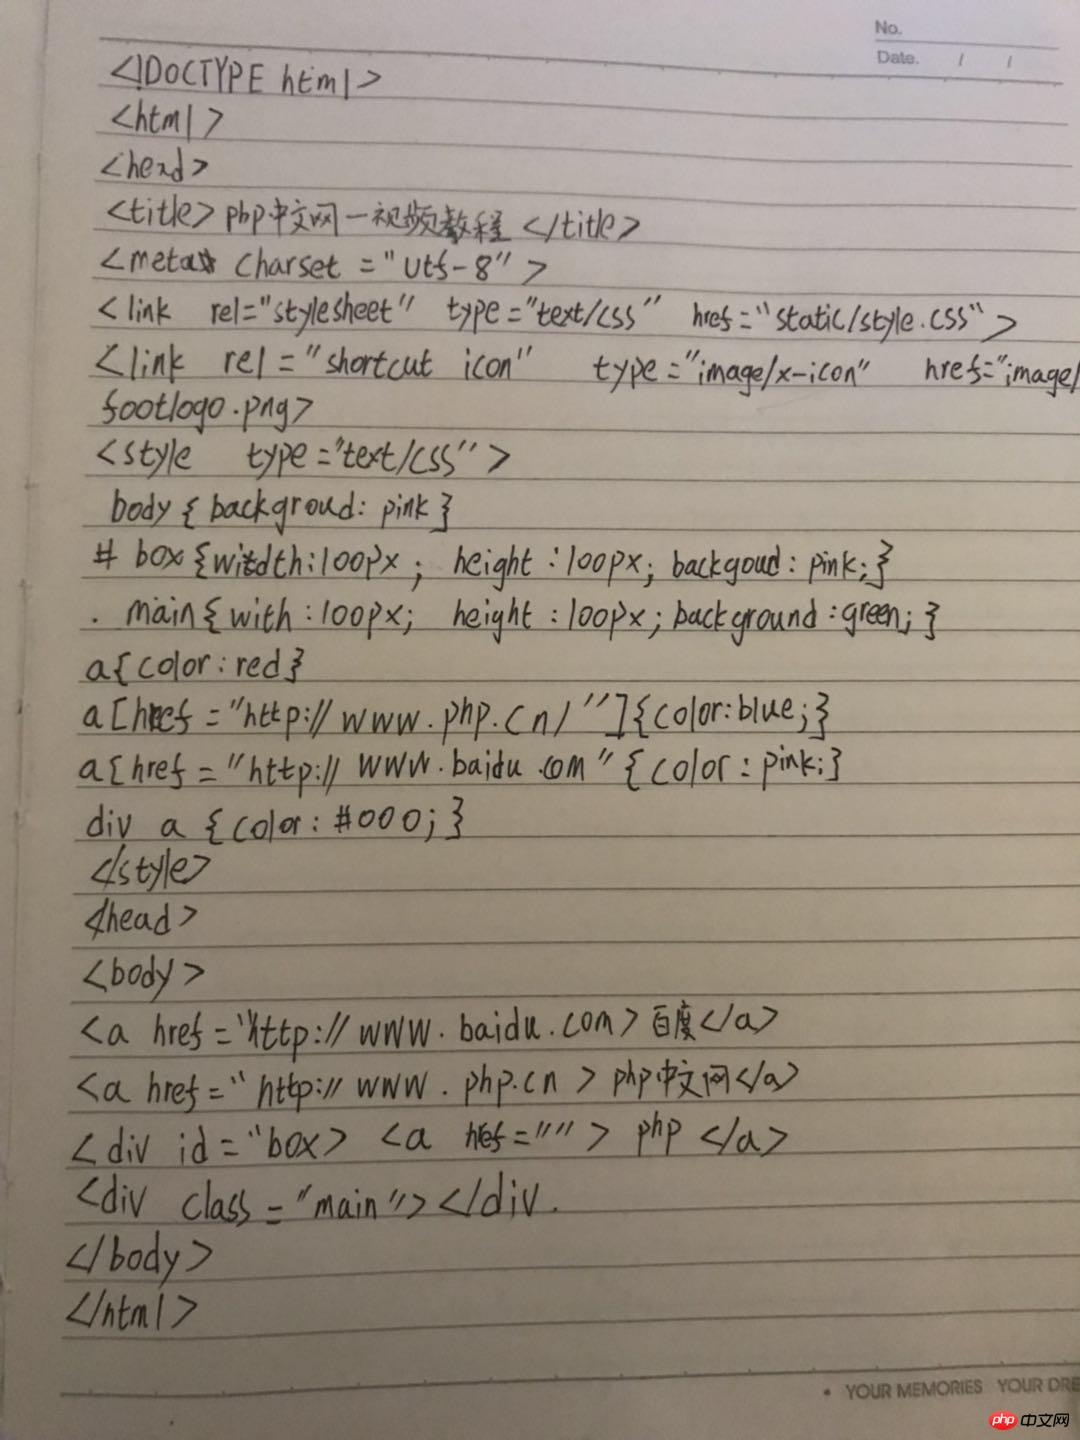 No.
Date. / /
<!DOCTYPE html>
<html>
<head>
<title>php中文网一视频教程</title>
<meta charset="utf-8">
<link rel="stylesheet" type="text/css" href="static/style.css">
<link rel="shortcut icon" type="image/x-icon" href="image/
footlogo.png>
<style type="text/css">
body{backgroud: pink}
# box{width:100px; height:100px; backgoud: pink;}
. main{with:100px; height:100px; background:green;}
a{color:red}
a[href="http://www.php.cn/"]{color:blue;}
a[href="http://www.baidu.com"{color:pink;}
div a {color:#000;}
</style>
</head>
<body>
<a href="http://www.baidu.com>百度</a>
<a href="http://www.php.cn>php中文网</a>
<div id="box> <a href=""> php </a>
<div class="main"></div.
</body>
</html>
• YOUR MEMORIES YOUR DRE
php 中文网